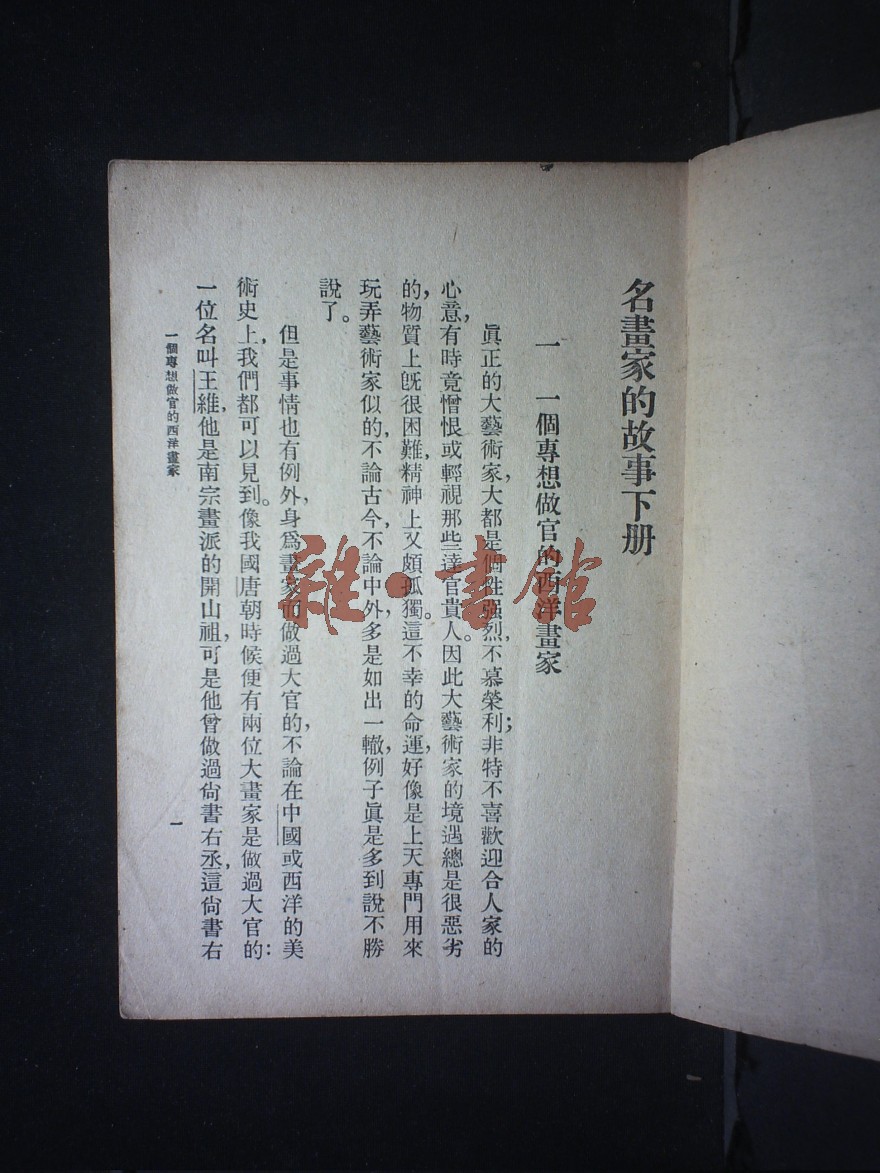 名畫家的故事下册
一 一個專想做官的西洋畫家
眞正的大藝術家，大都是個性强烈，不慕榮利；非特不喜歡迎合人家的
心意，有時竟憎恨或輕視那些達官貴人。因此大藝術家的境遇總是很惡劣
的，物質上旣很困難，精神上又頗孤獨。這不幸的命運，好像是上天專門用來
玩弄藝術家似的，不論古今，不論中外，多是如出一轍，例子眞是多到說不勝
說了。
但是事情也有例外，身爲畫家而做過大官的，不論在中國或西洋的美
術史上，我們都可以見到。像我國唐朝時候便有兩位大畫家是做過大官的：
一位名叫王維，他是南宗畫派的開山祖，可是他曾做過尙書右丞，這尙書右
一個專想做官的西洋畫家
一
雜·書館